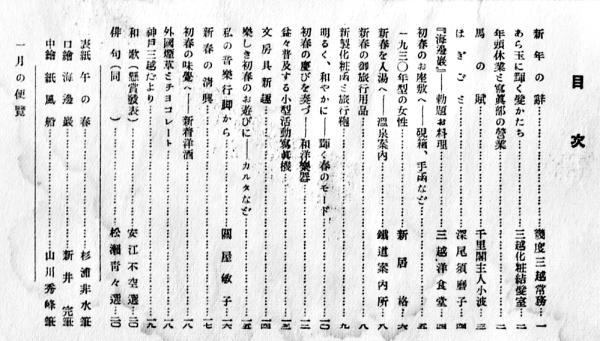 目次
新年の辭……幾度三越常務…一
あら玉に輝く髮かたち……三越化粧結髮室…二
年頭休業と寫眞部の營業……二
馬の賦……千里閣主人小波…三
はぎごと……深尾須磨子…四
『海邊巖』――勅題お料理……三越洋食堂…四
初春のお座敷へ――硯箱、手函など……五
一九三〇年型の女性……新居格…六
新春を入湯へ――溫泉案內……鐵道案內所…八
新春の御旅行用品……八
新製化粧函と旅行鞄……九
明るく、和やかに――輝く春のモード……一〇
初春の慶びを奏づ――和洋樂器……一二
益々普及する小型活動寫眞機……一三
文房具新趣……一四
樂しき初春のお遊びに――カルタなど……一五
私の音樂行脚から……關屋敏子…一六
新春の淸興……一七
初春の味覺へ――新着洋酒……一八
外國煙草とチヨコレート……一八
神戸三越だより……一九
和歌(懸賞發表)……安江不空選…二〇
俳句(同)……松瀨靑々選…二〇
表紙 午の春……杉浦非水筆
口繪 海邊巖……新井完筆
中繪 紙風船……山川秀峰筆
一月の便覽